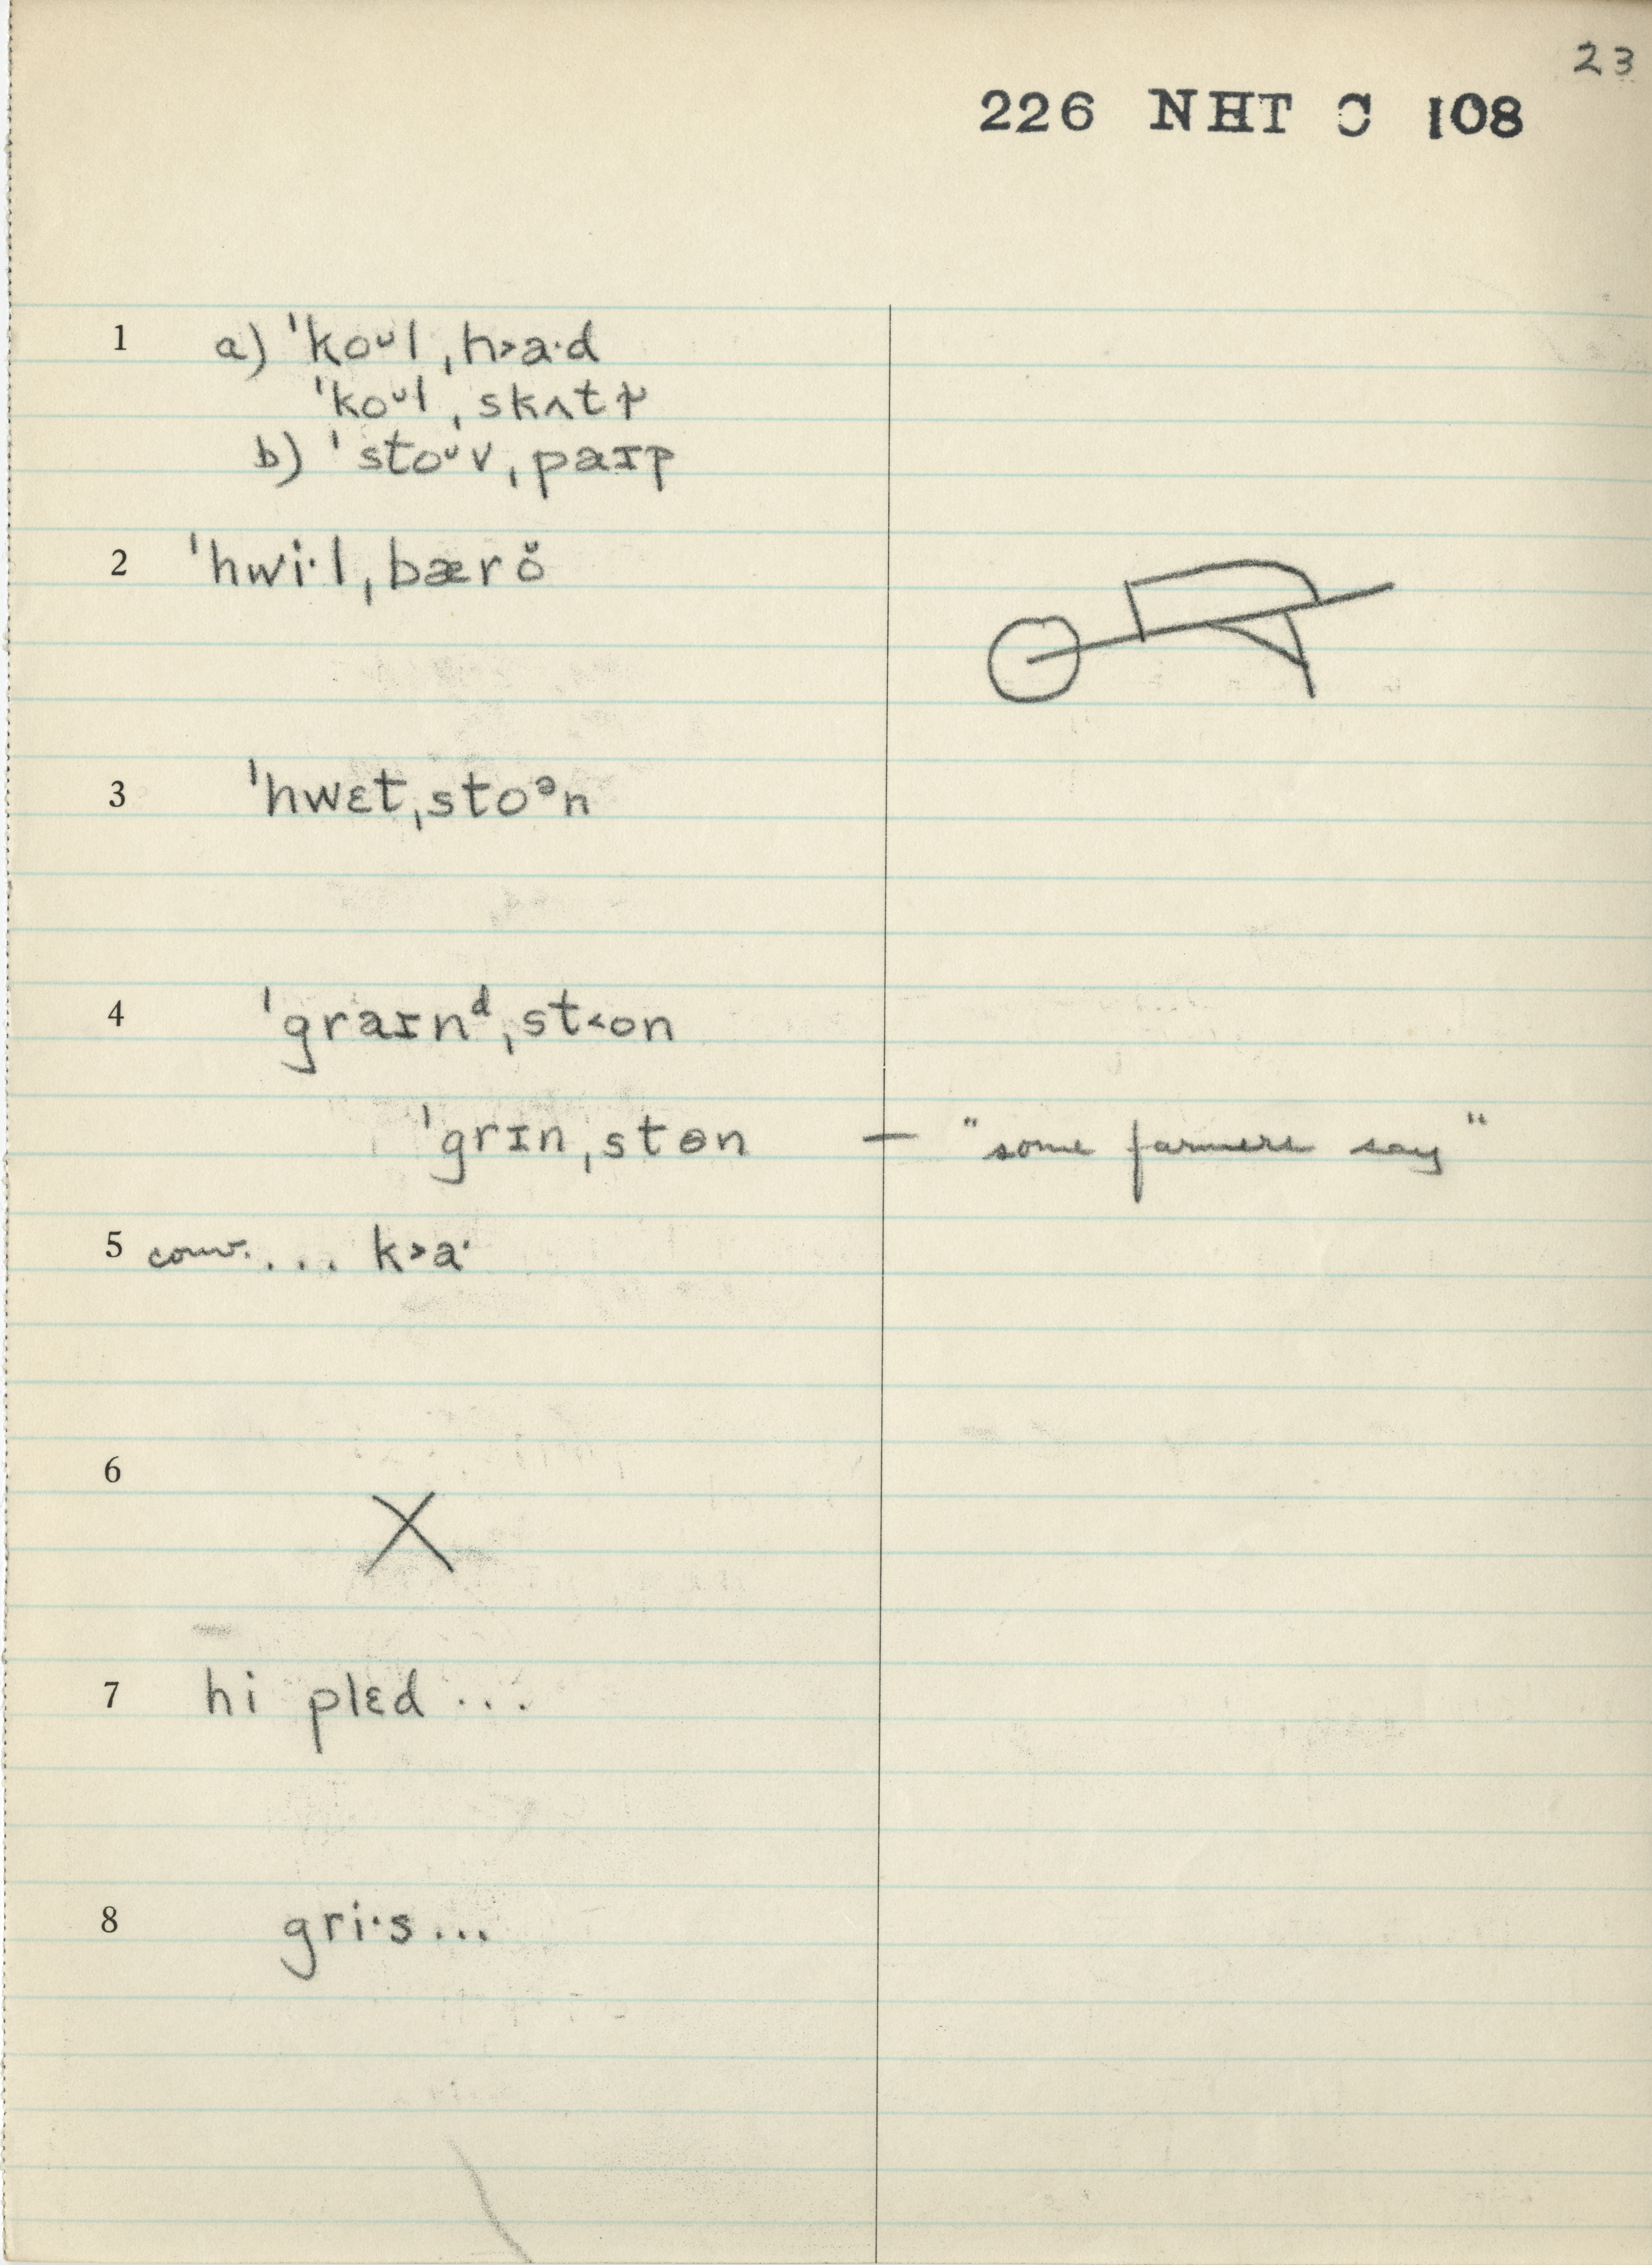 23
226 NHT C 108
1 a) ˈkoᵁl ˌh˃a·d
ˈkoᵁl ˌskʌtɚ
b) ˈstoᵁv ˌpaɪp
2 ˈhwi·l ˌbærŏ
3 ˈhwɛt ˌstoᵊn
4 ˈgraɪnᵈ ˌst˂on
ˈgrɪn ˌstɵn — "some farmers say"
5 conv. ... k˃a·
6 X
7 hi plɛd ...
8 gri·s ...